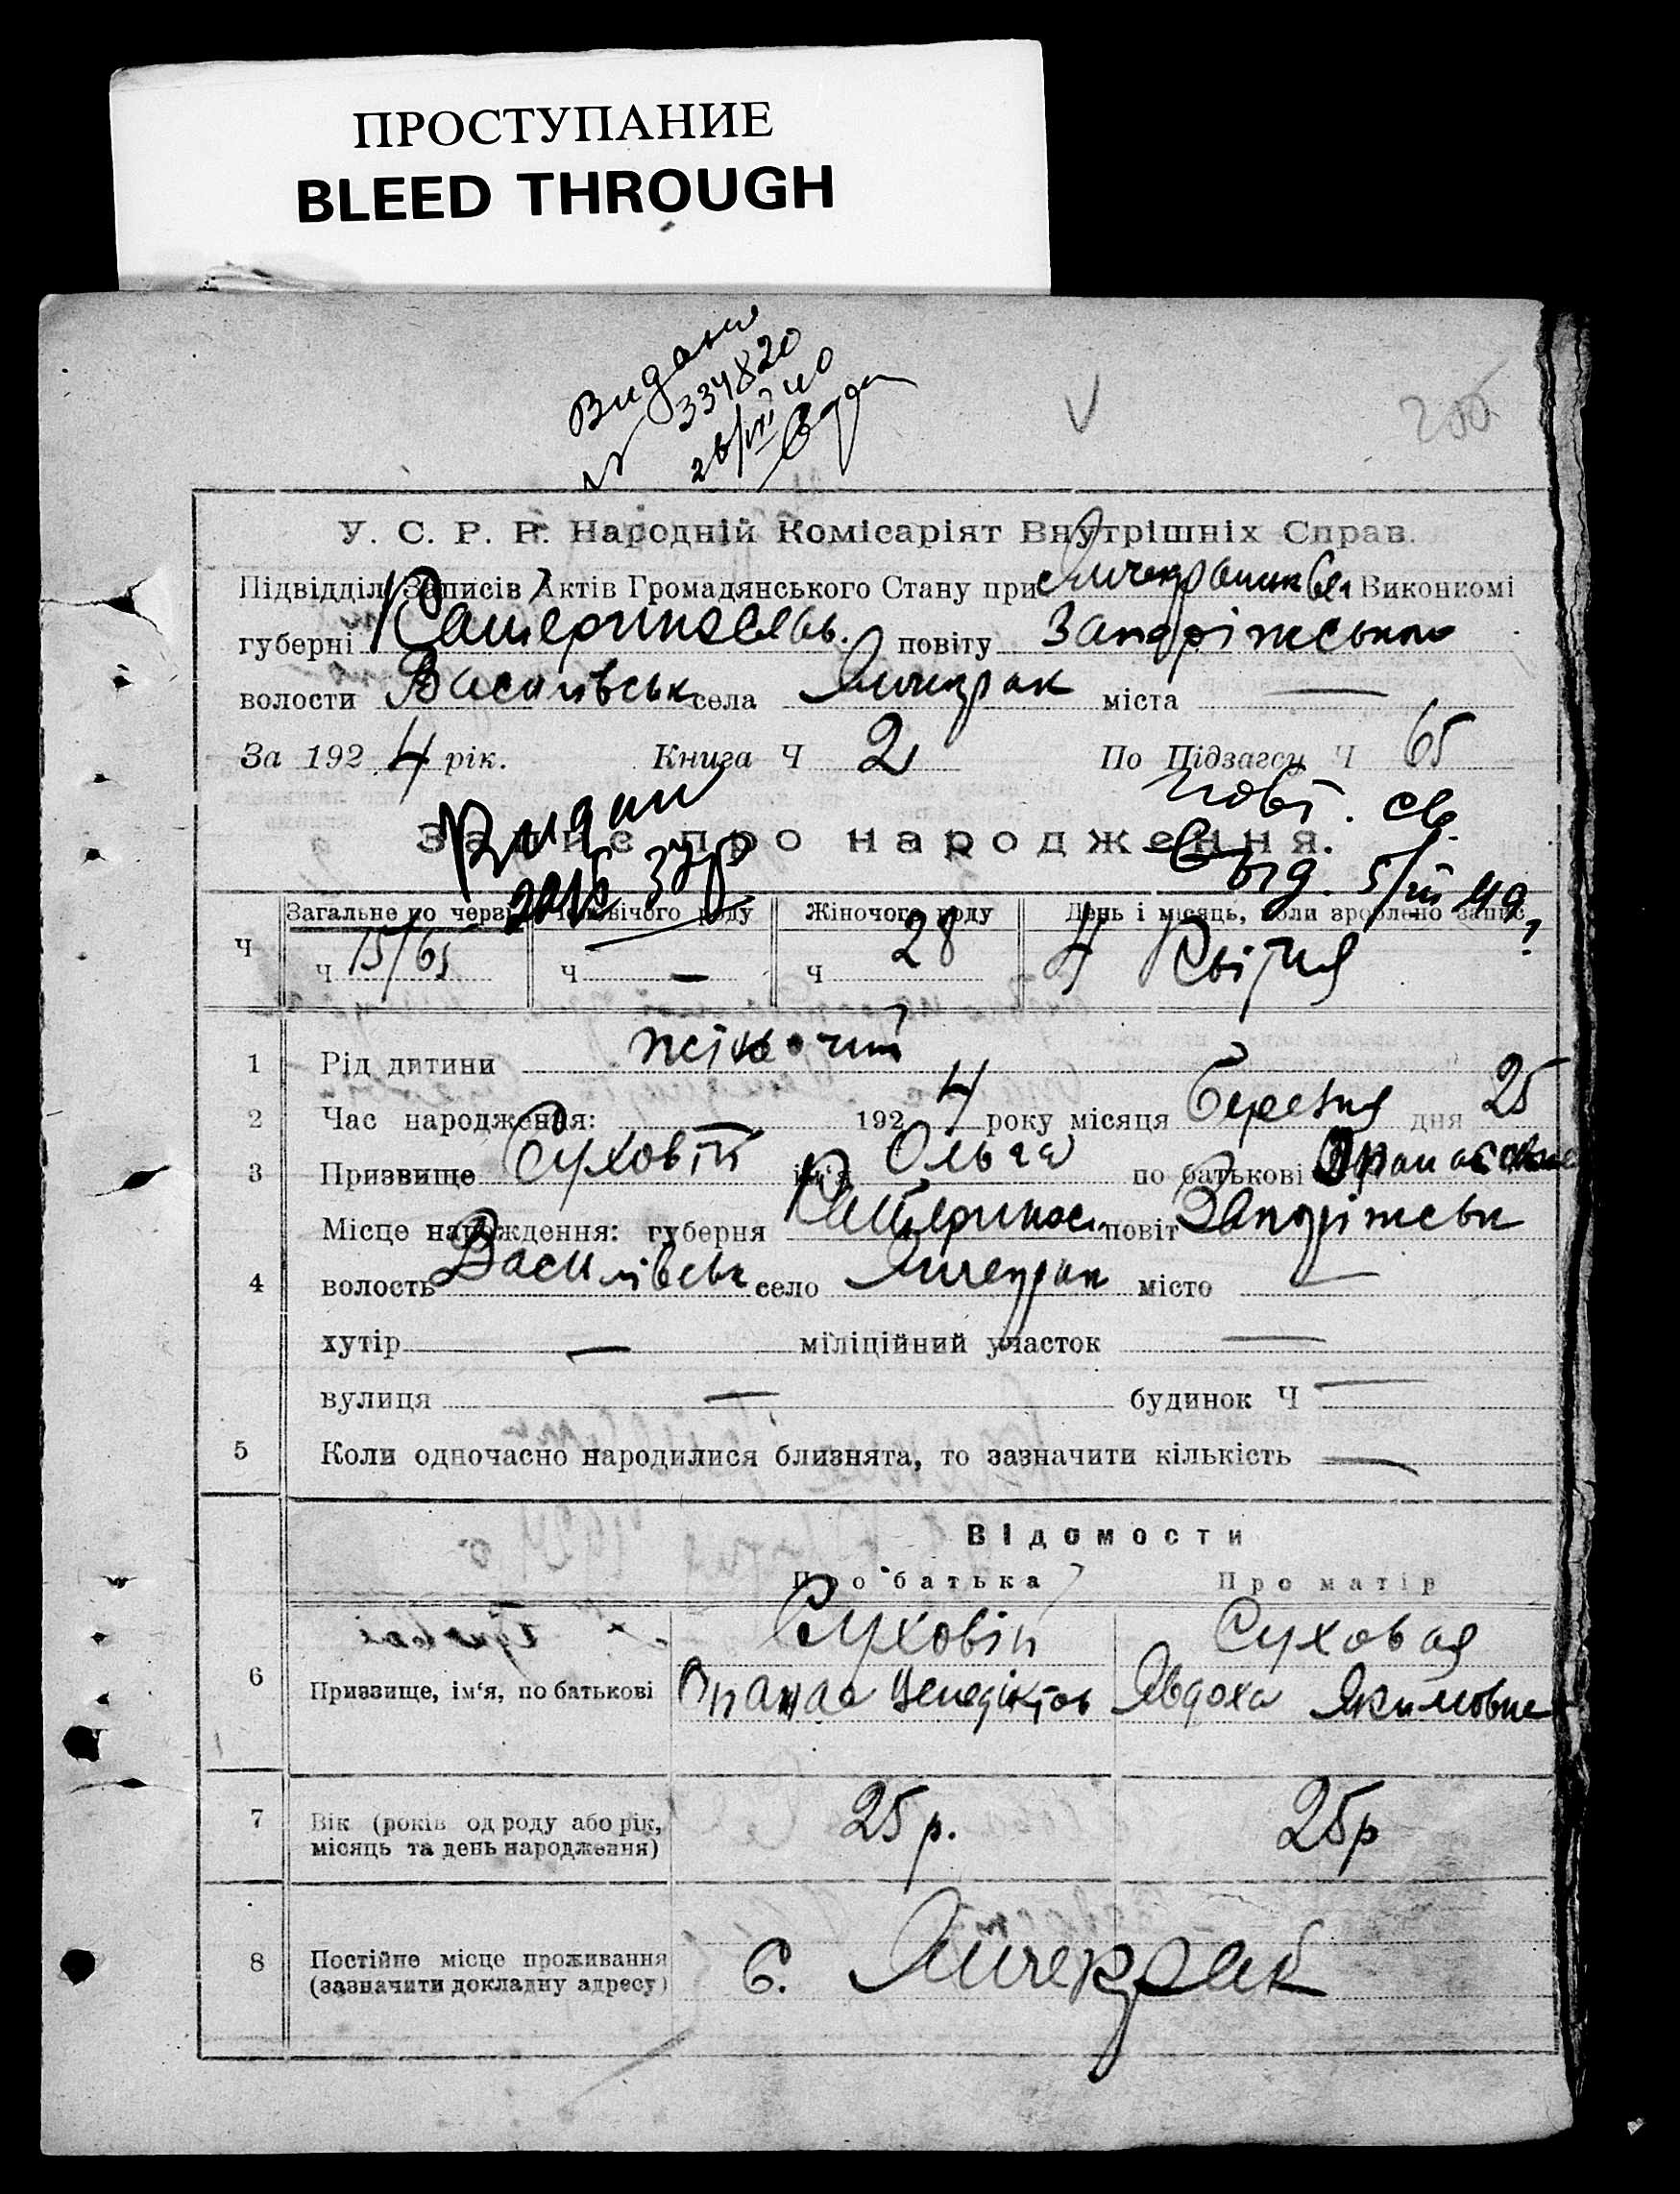 ПРОСТУПАНИЕ
BLEED THROUGH
Видано
334820
200
У. С. Р. Р. Народній Комісаріят Внутрішніх Справ.
Підвідділ Записів Актів Громадянського Стану при Виконкомі
губерні Катеринослав. повіту Запоріжського
волости Василівськ села Янчекрак міста —
За 1924 рік. Книга Ч 2 По Підзагсу Ч 65
Запис про народження.
Загальне по черзі Чоловічого роду Жіночого роду День і місяць, коли зроблено запис
Ч Ч 15/65 Ч — Ч 28 4 Квітня
1 Рід дитини жіночий
2 Час народження: 1924 року місяця Березня дня 25
3 Призвище Суховій ім'я Ольга по батькові
Місце народження: губерня Катеринос. повіт Запоріжськ
4 волость Василівськ село Янчекрак місто —
хутір — міліційний участок —
вулиця — будинок Ч —
5 Коли одночасно народилися близнята, то зазначити кількість —
Відомости
Про батька Про матір
Суховій Суховая
6 Призвище, ім'я, по батькові Опанас Венедіктов Явдоха Якимовна
7 Вік (років од роду або рік, місяць та день народження) 25 р. 25 р
8 Постійне місце проживання (зазначити докладну адресу) С. Янчекрак